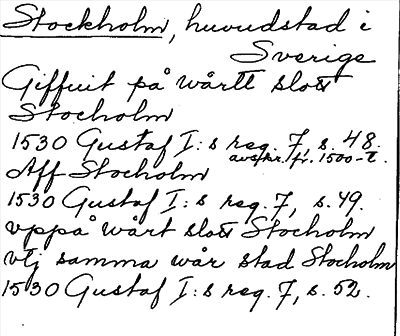 Stockholm, huvudstad i
Sverige
Giffuit på wårtt slott
Stocholm
1530 Gustaf I:s reg. 7, s. 48.
avskr. fr. 1500-t.
Aff Stocholm
1530 Gustaf I:s reg. 7, s. 49.
vppå wårt slott Stocholm
vtj samma wår stad Stocholm
1530 Gustaf I:s reg. 7, s. 52.